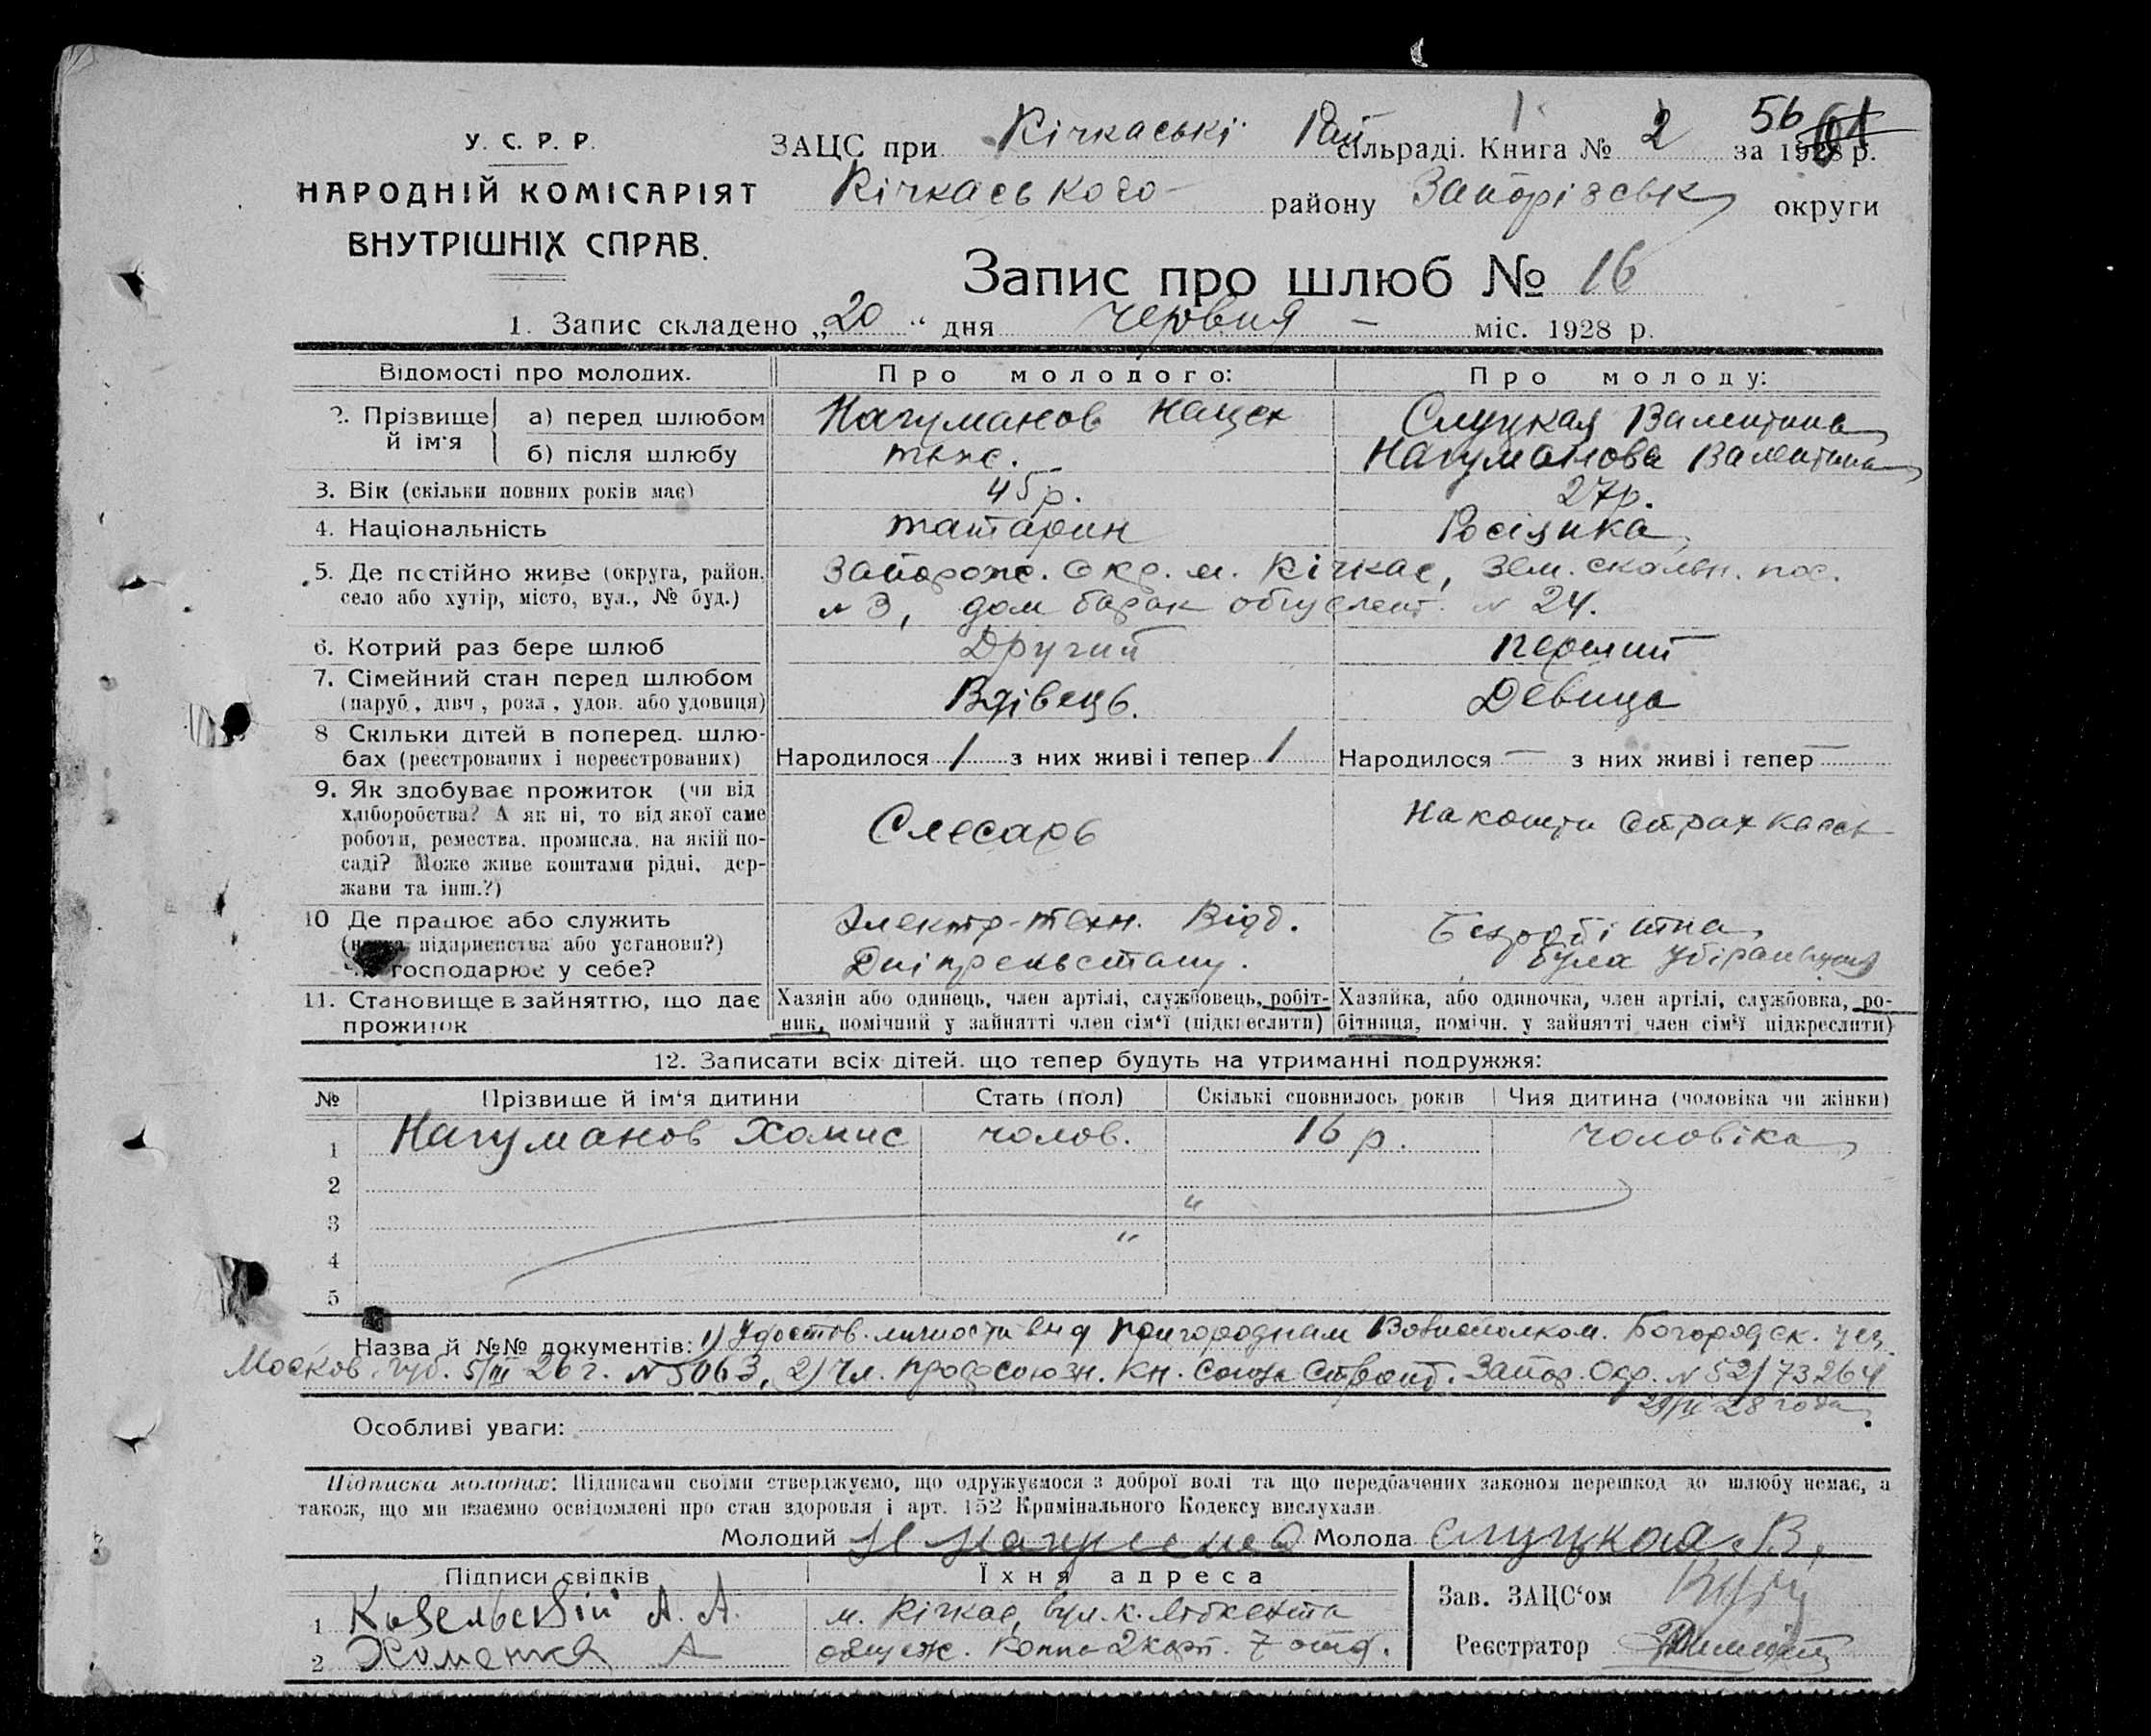 У. С. Р. Р.
НАРОДНІЙ КОМІСАРІЯТ
ВНУТРІШНІХ СПРАВ.
ЗАЦС при Кічкаські Рай сільраді. Книга № 2 за 1928 р.
56
Кічкаського району Запорізськ округи
Запис про шлюб № 16
1. Запис складено „20“ дня червня — міс. 1928 р.
Відомості про молодих. Про молодого: Про молоду:
2. Прізвище й ім‘я а) перед шлюбом Нагуманов Слуцкая Валентина
б) після шлюбу теж. Нагуманова Валентина
3. Вік (скільки повних років має) 45 р. 27 р.
4. Національність татарин Росіянка
5. Де постійно живе (округа, район, Запорож. Окр. м. Кічкас, Зем. пос.
село або хутір, місто, вул., № буд.) № 3, дом барак № 24.
6. Котрий раз бере шлюб Другий первий
7. Сімейний стан перед шлюбом Вдівець. Девица
(паруб., дівч., розл., удов. або удовиця)
8 Скільки дітей в поперед. шлю-
бах (реєстрованих і нереєстрованих) Народилося 1 з них живі і тепер 1 Народилося — з них живі і тепер —
9. Як здобуває прожиток (чи від
хліборобства? А як ні, то від якої саме
роботи, ремества, промисла, на якій по-
саді? Може живе коштами рідні, дер-
жави та інш.?)
Слесарь На кошти Страхкаси
10 Де працює або служить Электр-техн. Відд. Безробітна,
підприємства або установи?) Дніпрельстану. була
господарює у себе?
11. Становище в зайняттю, що дає прожиток
Хазяїн або одинець, член артілі, службовець, робіт-
ник, помічний у зайнятті член сім‘ї (підкреслити)
Хазяйка, або одиночка, член артілі, службовка, ро-
бітниця, помічн. у зайнятті член сім‘ї підкреслити)
12. Записати всіх дітей, що тепер будуть на утриманні подружжя:
№ Прізвище й ім‘я дитини Стать (пол) Скількі сповнилось років Чия дитина (чоловіка чи жінки)
1 Нагуманов Хамис чолов. 16 р. чоловіка
2
3
4
5
Назва й №№ документів: 1) Удостов. личности вид Пригородним Волисполком. Богородск. уез.
Москов. губ. 5/III 26 г. № 5063, 2) Чл. профсоюзн. кн. Союза Строит. Запор. Окр. № 52/73264
28 года
Особливі уваги:
Підписка молодих: Підписами своїми стверджуємо, що одружуємося з доброї волі та що передбачених законом перешкод до шлюбу немає, а
також, що ми взаємно освідомлені про стан здоровля і арт. 152 Кримінального Кодексу вислухали
Молодий Молода Слуцкая В.
Підписи свідків Їхня адреса
1 А. А. м. Кічкас, вул. К. Лібкнехта
2 Хоменко А общеж. 2 корп. 7 отд.
Зав. ЗАЦС‘ом
Реєстратор